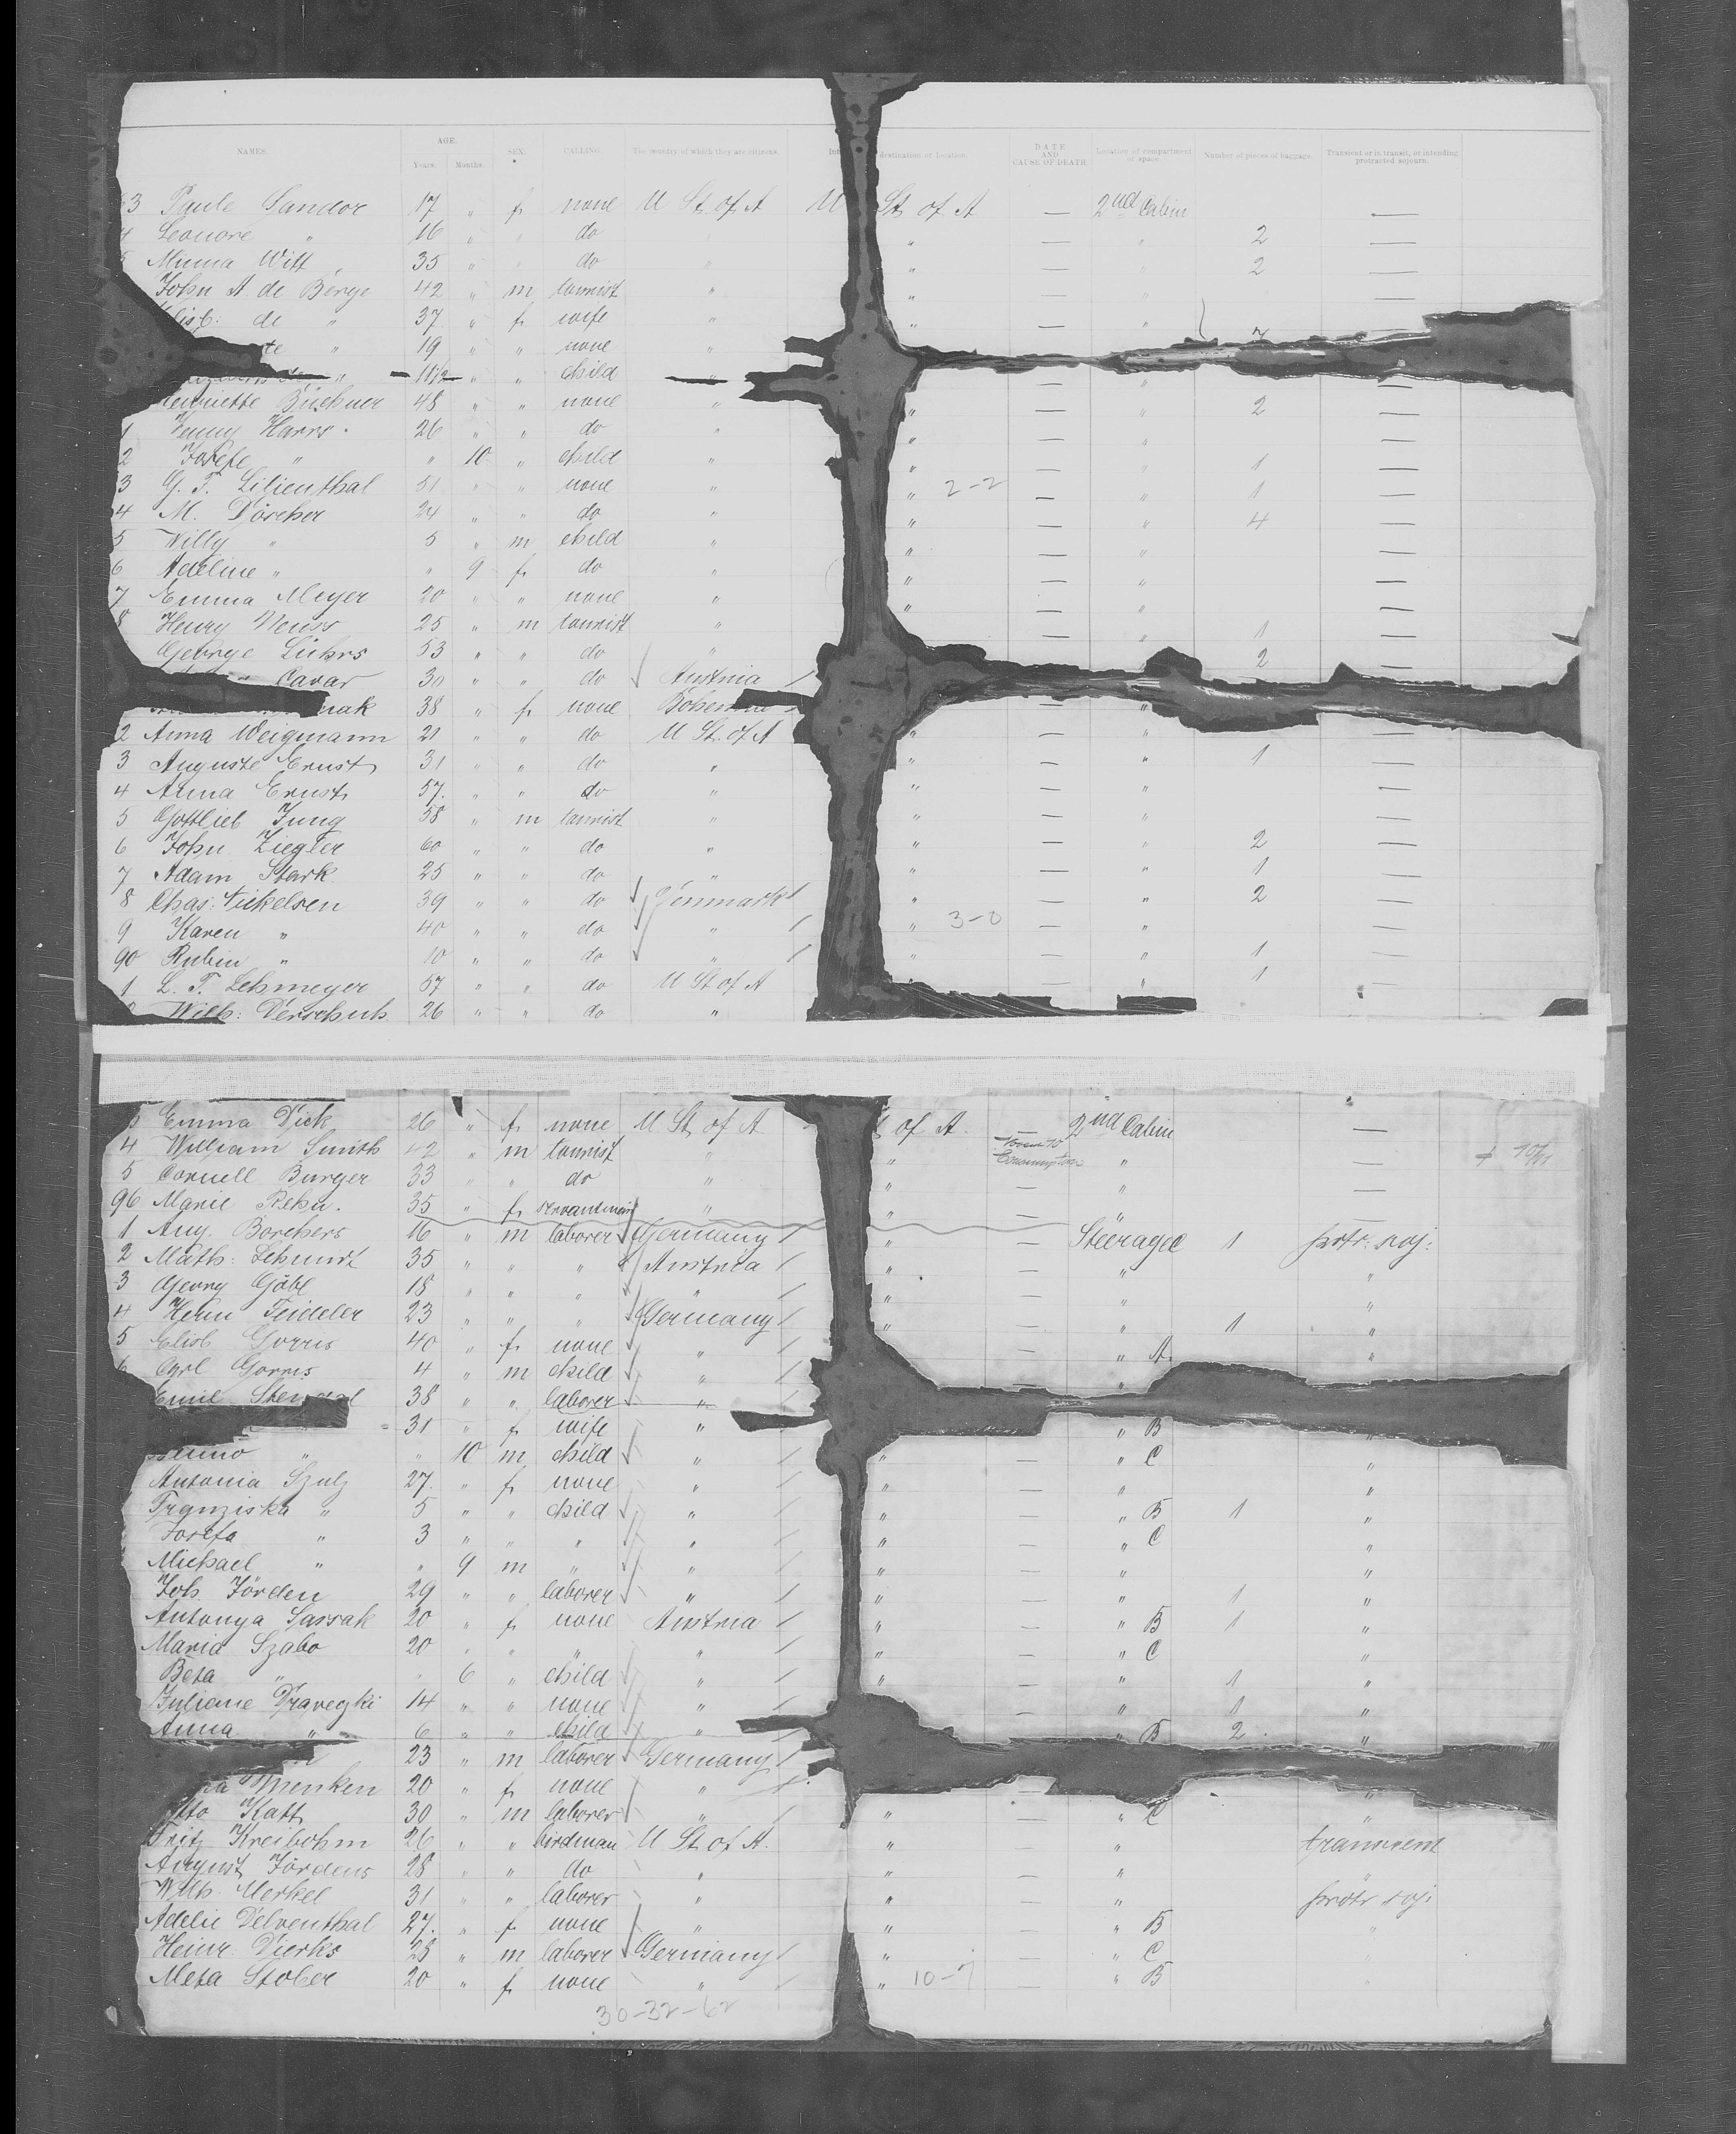 NAMES. AGE. Years. Months. SEX. CALLING. The country of which they are citizens. destination or location. DATE AND CAUSE OF DEATH Location of compartment or space. Number of pieces of baggage. Transient or in transit, or intending protracted sojourn.
3 Paule Sandor 17 " f none U St of A U St of A — 2nd Cabin —
4 Leonore " 16 " " do " " — " 2 —
Minna Witt 35 " " do " " — " 2 —
John A de Berge 42 " m tourist " " — " —
de " 37 " f wife " " — "
" 19 " " none "
" 11/2 " " child "
Büchner 48 " " none " " — " 2 —
1 Jenny Harrs 26 " " do " " — " —
2 Josefe " " 10 " child " " — " 1 —
3 G. F. Lilienthal 51 " " none " " 2-2 — " 1 —
4 M. Döscher 24 " " do " " — " 4 —
5 Willy " 5 " m child " " — " —
6 Adeline " " 9 f do " " — " —
7 Emma Meyer 20 " " none " " — " —
8 Henry Neuss 25 " m tourist " — " 1 —
George Lührs 53 " " do " — 2 —
Cavar 30 " " do Austria
38 " f none — "
2 Anna Weigmann 21 " " do U St. of A " — " —
3 Auguste Ernst 31 " " do " " — " 1 —
4 Anna Ernst 57. " " do " " — " —
5 Gottlieb Jung 58 " m tourist " " — " —
6 John Ziegler 60 " " do " " — " 2 —
7 Adam Stark 25 " " do " " — " 1 —
8 Chas. Nickelsen 39 " " do Denmark " — " 2 —
9 Karen " 40 " " do " " 3-0 — " —
90 Rubin " 10 " " do " " — " 1 —
1 L. F. Lehmeyer 57 " " do U St of A — " 1 —
Wilh: Derschuh 26 " " do "
Emma Dick 26 " f none U St of A of A — 2nd Cabin —
4 William Smith 42 " m tourist " " Consumption " —
5 Cornell Burger 33 " " do " " — " —
96 Marie Rehn. 35 " f servantmaid " " — " —
1 Aug. Borchers 16 " m laborer Germany " — Steerage C 1 protr: soj:
2 Math: Schmidt 35 " " " Austria " — " "
3 Georg Göbl 18 " " " " " — " "
4 Herm Feideler 23 " " " Germany " — " 1 "
5 Elisb Gorris 40 " f none " — " A "
6 Carl Gorris 4 " m child " — "
Emil 38 " " laborer "
31 " f wife " " B "
" " 10 m child " " — " C "
Antonia Szulz 27. " f none " " — " "
Franziska " 5 " " child " " — " B 1 "
Josefa " 3 " " " " " — " C "
Michael " " 9 m " " " — " "
Joh. Jörden 29 " " laborer " " — " 1 "
Antonya Sassak 20 " f none Austria " — " B 1 "
Maria Szabo 20 " " " " " — " C "
Beta " " 6 " child " " — " 1 "
Juliene 14 " " none " — " 1 "
Anna " 6 " " child " " B 2 "
23 " m laborer Germany
20 " f none "
Otto Katt 30 " m laborer " " — " C "
Fritz Kreibohm 26 " " birdman U St of A. " — " transient
August Jördens 28 " " do " " — " "
Wilh. Merkel 31 " " laborer " " — " protr soj:
Adelie Delventhal 27. " f none " " — " B "
Heinr. Dierks 28 " m laborer Germany " — " C
Meta Stober 20 " f none " " 10-7 — " B
30-32-62